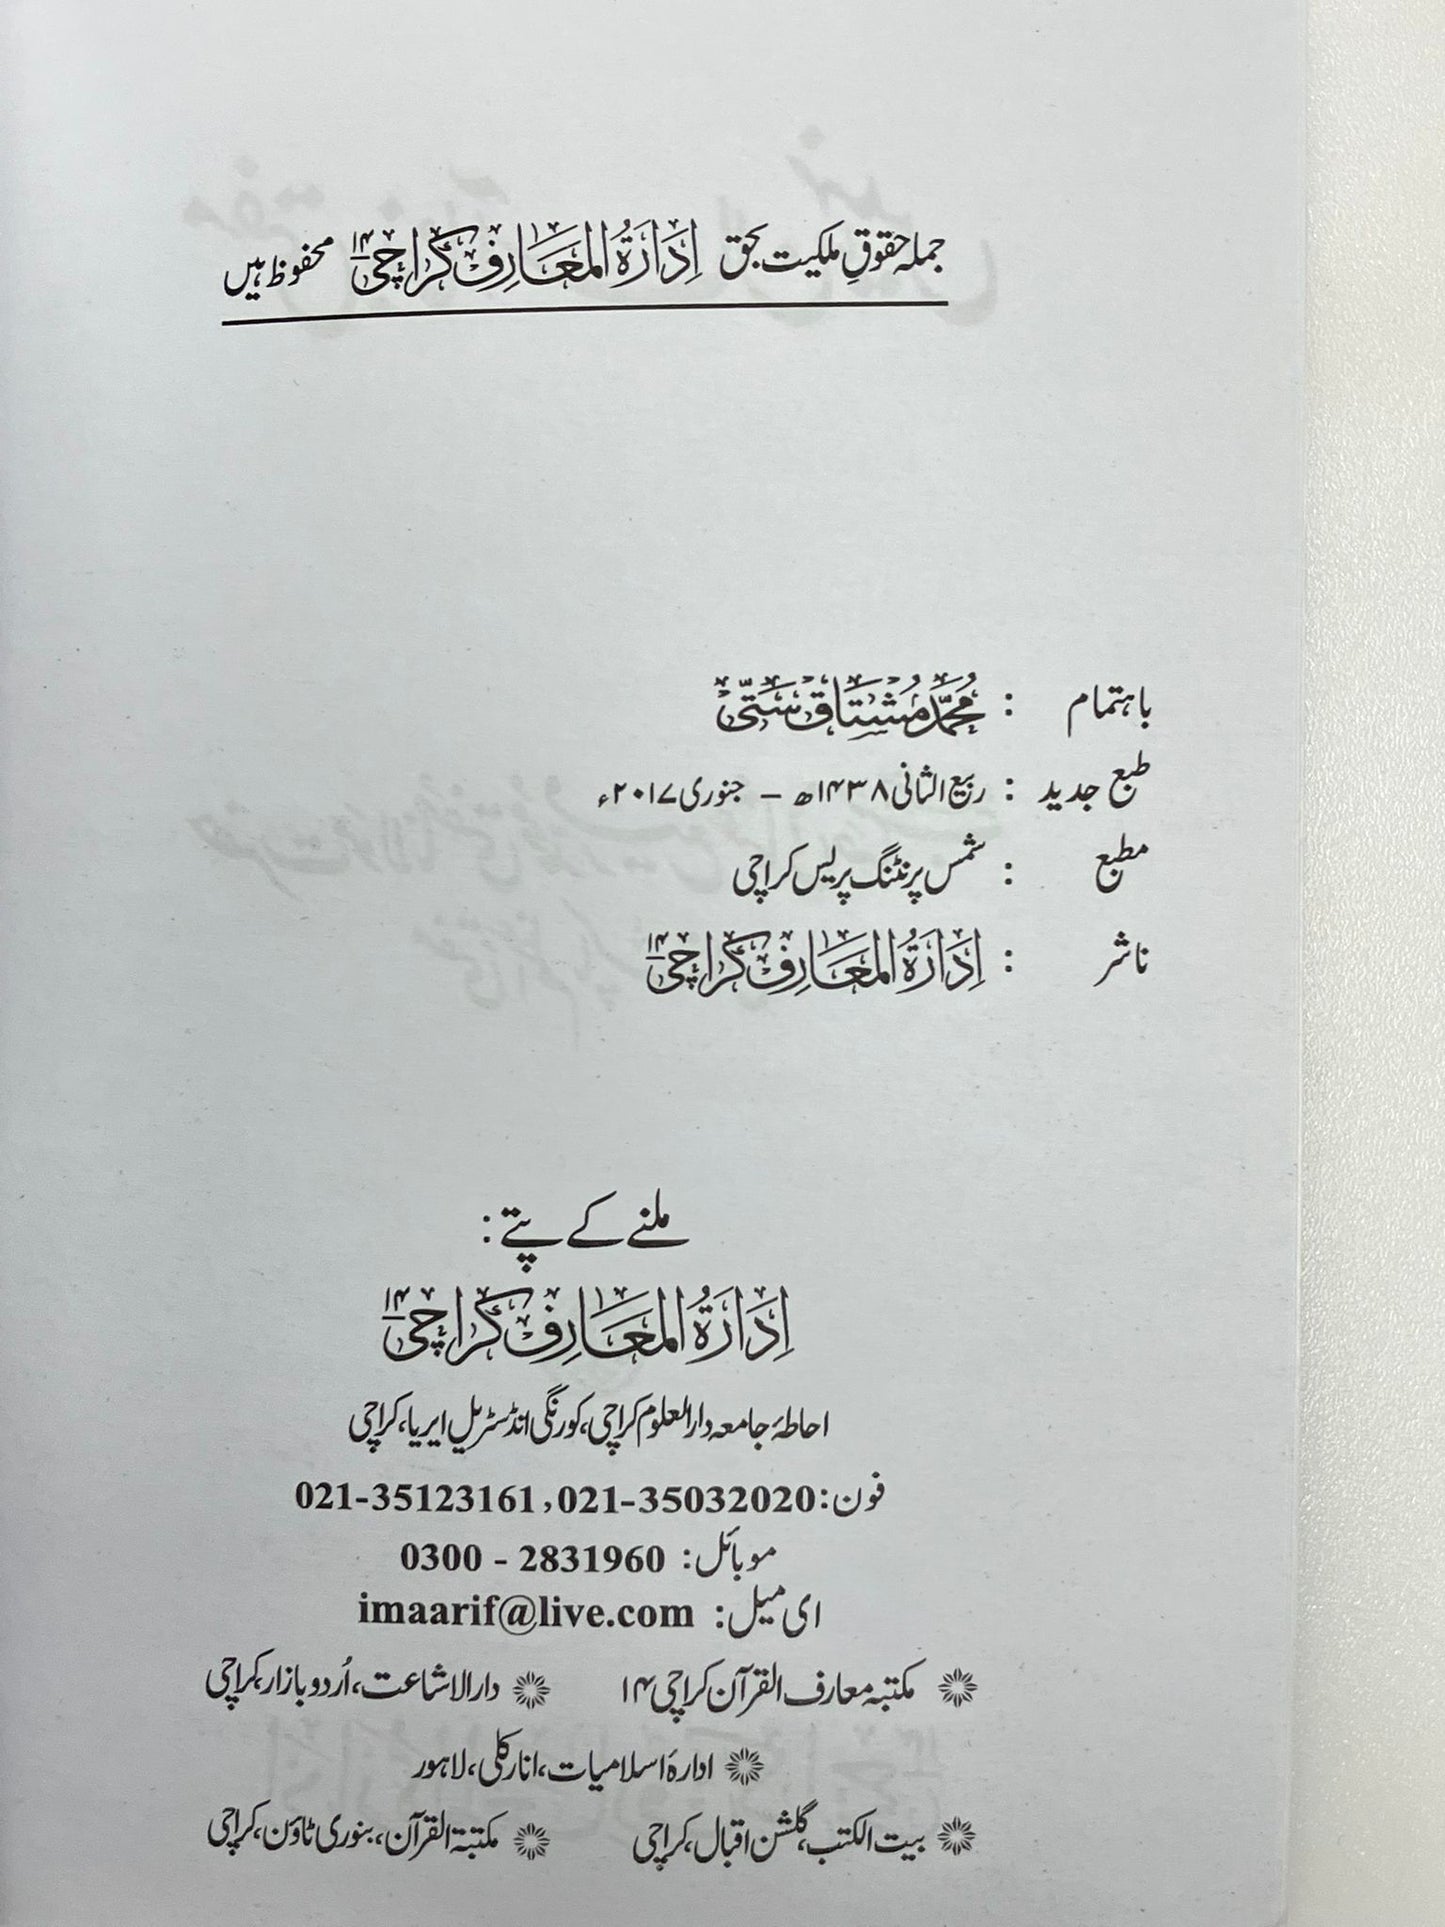 جملہ حقوقِ ملکیت بحق اِدَارَۃُ المَعَارِف کَرَاچِی ۱۴ محفوظ ہیں
باہتمام : مُحَمَّد مُشتَاق سَتّی
طبع جدید : ربیع الثانی ۱۴۳۸ھ – جنوری ۲۰۱۷ء
مطبع : شمس پرنٹنگ پریس کراچی
ناشر : اِدَارَۃُ المَعَارِف کَرَاچِی ۱۴
ملنے کے پتے :
اِدَارَۃُ المَعَارِف کَرَاچِی ۱۴
احاطۂ جامعہ دارالعلوم کراچی، کورنگی انڈسٹریل ایریا، کراچی
فون: 021-35123161, 021-35032020
موبائل: 0300 - 2831960
ای میل: imaarif@live.com
مکتبہ معارف القرآن کراچی ۱۴ دارالاشاعت، اُردو بازار، کراچی
ادارۂ اسلامیات، انارکلی، لاہور
بیت الکتب، گلشن اقبال، کراچی مکتبۃ القرآن، بنوری ٹاؤن، کراچی